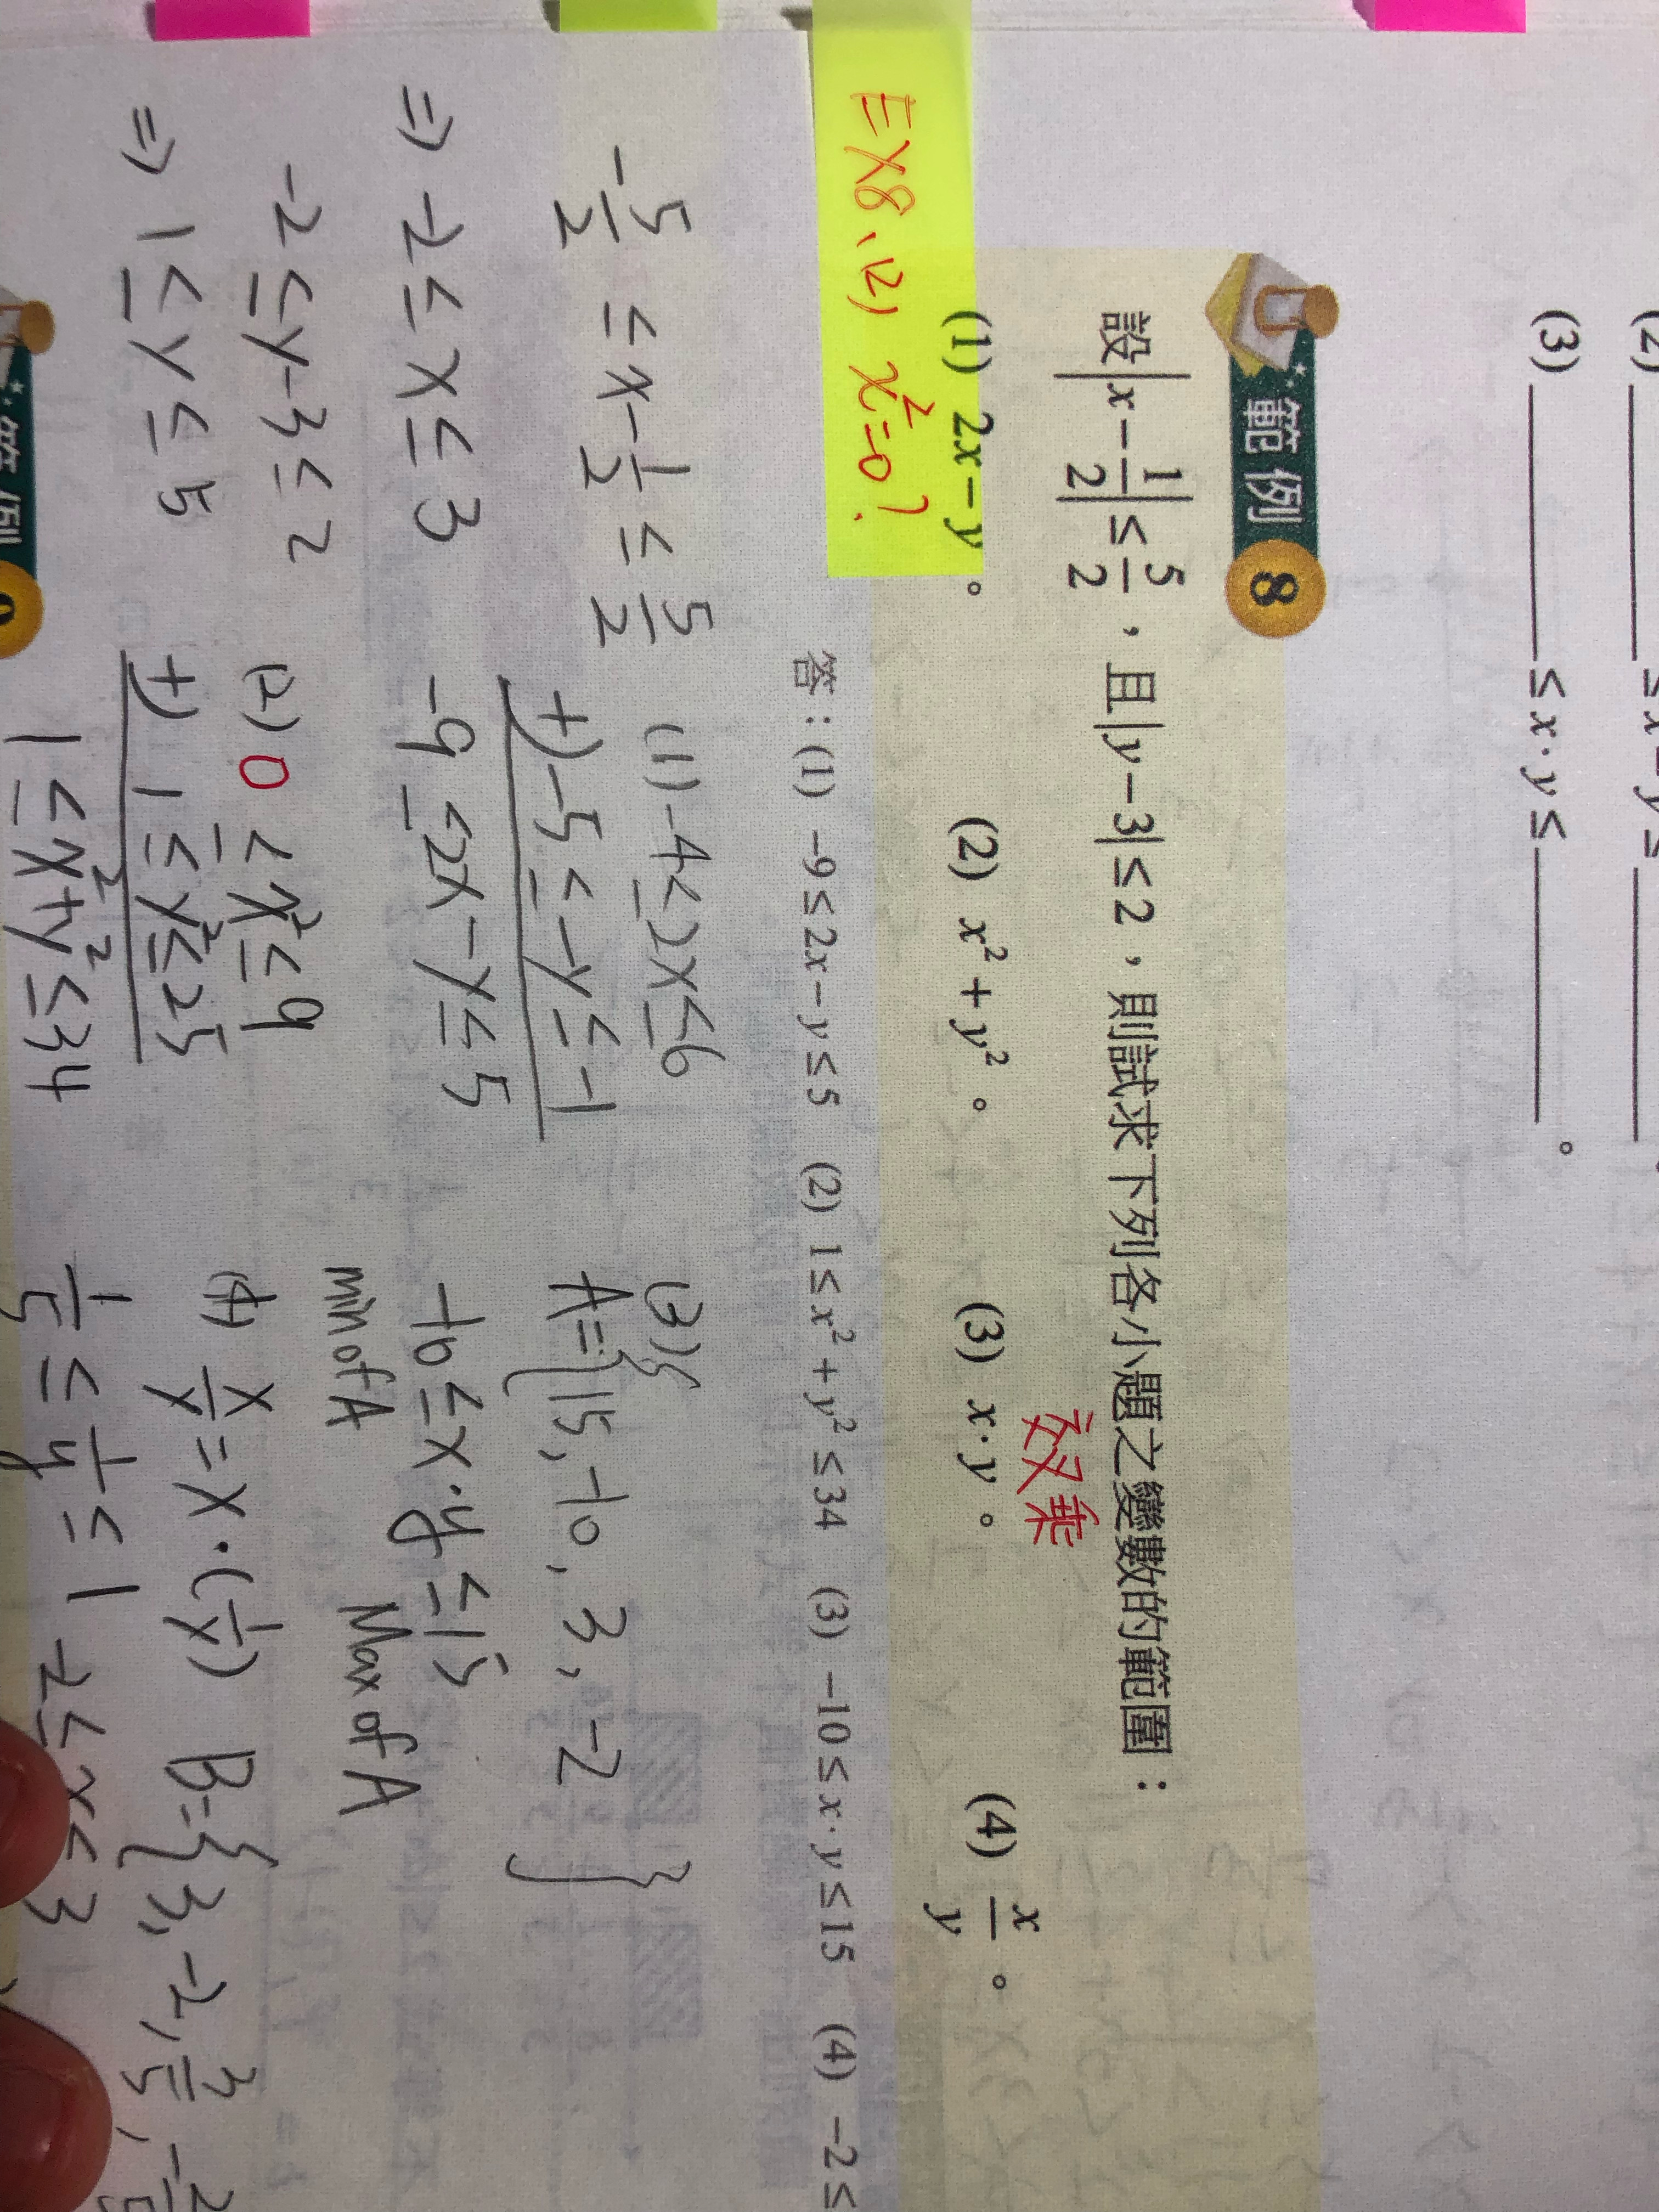 (2) ≤ x − y ≤
(3) ≤ x · y ≤ 。
範例 8
設|x − 1/2| ≤ 5/2,且|y − 3| ≤ 2,則試求下列各小題之變數的範圍:
交叉乘
(1) 2x − y。 (2) x² + y²。 (3) x · y。 (4) x/y。
EX8、(2) x²=0?
答:(1) −9 ≤ 2x − y ≤ 5 (2) 1 ≤ x² + y² ≤ 34 (3) −10 ≤ x · y ≤ 15 (4) −2 ≤
-5/2 ≤ x - 1/2 ≤ 5/2
⇒ -2 ≤ x ≤ 3
-2 ≤ y-3 ≤ 2
⇒ 1 ≤ y ≤ 5
(1) -4 ≤ 2x ≤ 6
+) -5 ≤ -y ≤ -1
-9 ≤ 2x-y ≤ 5
(2) 0 ≤ x² ≤ 9
+) 1 ≤ y² ≤ 25
1 ≤ x²+y² ≤ 34
(3)
A={15, -10, 3, -2}
-10 ≤ x·y ≤ 15
min of A Max of A
(4) x/y = x·(1/y) B={3, -2, 3/5, -2
1/5 ≤ 1/y ≤ 1 -2 ≤ x ≤ 3
範例 9